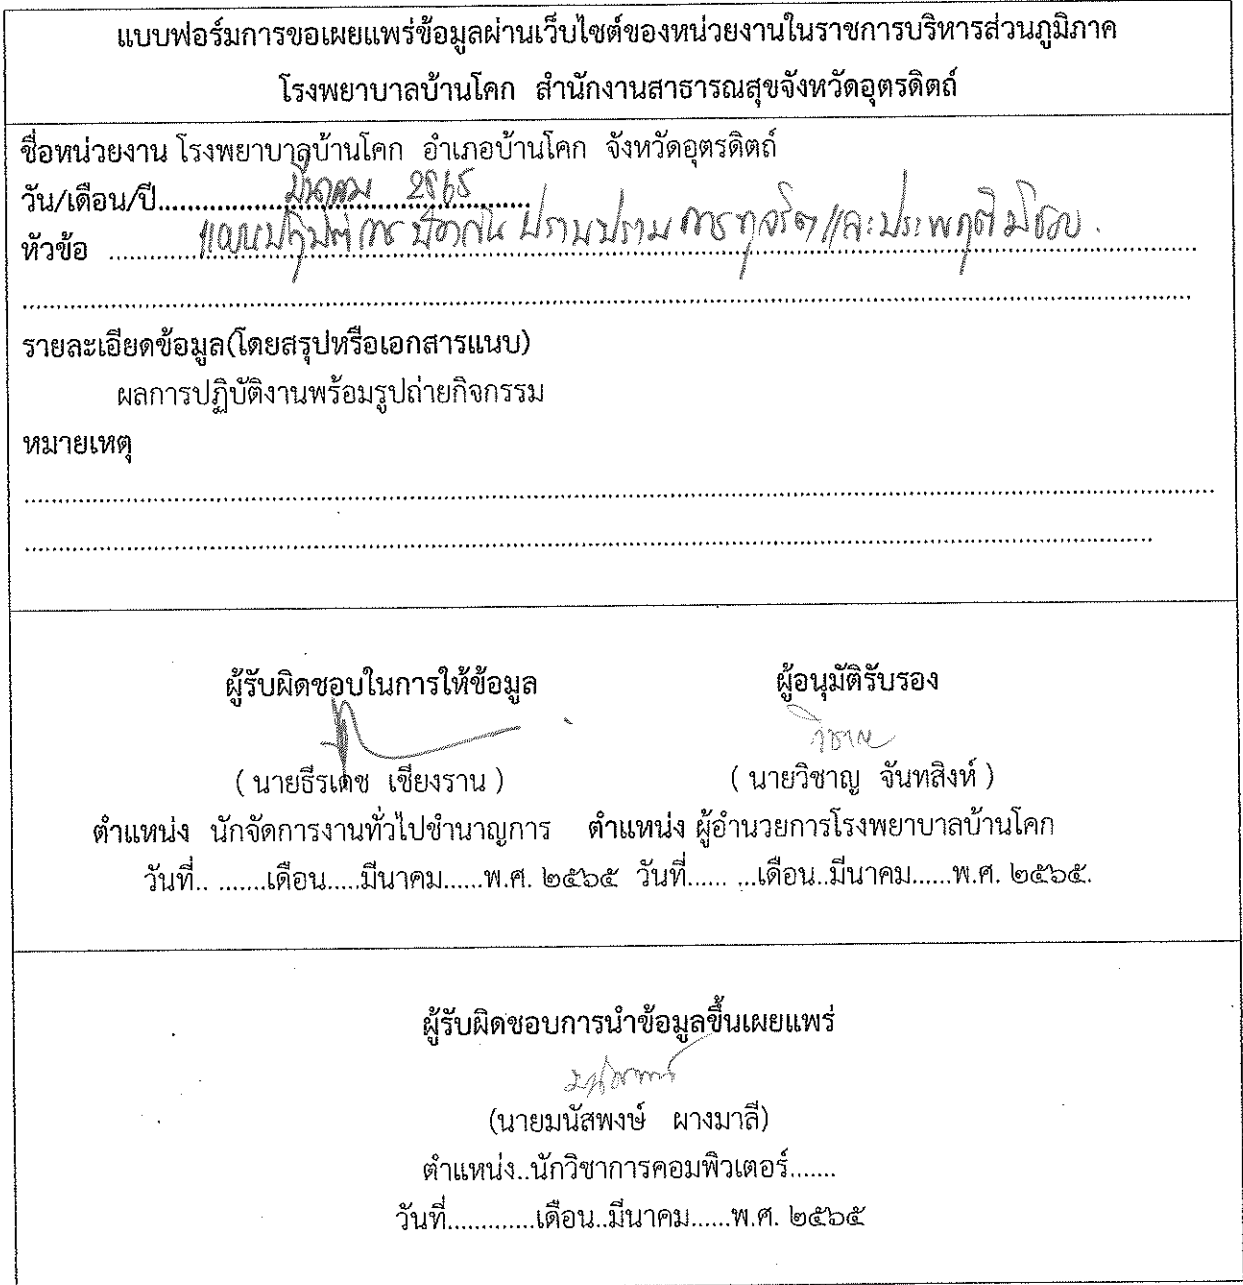 แบบฟอร์มการขอเผยแพร่ข้อมูลผ่านเว็บไซต์ของหน่วยงานในราชการบริหารส่วนภูมิภาค
โรงพยาบาลบ้านโคก สำนักงานสาธารณสุขจังหวัดอุตรดิตถ์
ชื่อหน่วยงาน โรงพยาบาลบ้านโคก อำเภอบ้านโคก จังหวัดอุตรดิตถ์
วัน/เดือน/ปี............มีนาคม 2565............
หัวข้อ ............แผนปฏิบัติการป้องกัน ปราบปราม การทุจริต และประพฤติมิชอบ.............
..............................................................................................................................
รายละเอียดข้อมูล(โดยสรุปหรือเอกสารแนบ)
ผลการปฏิบัติงานพร้อมรูปถ่ายกิจกรรม
หมายเหตุ
..............................................................................................................................
..............................................................................................................................
ผู้รับผิดชอบในการให้ข้อมูล ผู้อนุมัติรับรอง
วิชาญ
( นายธีรเดช เชียงราน ) ( นายวิชาญ จันทสิงห์ )
ตำแหน่ง นักจัดการงานทั่วไปชำนาญการ ตำแหน่ง ผู้อำนวยการโรงพยาบาลบ้านโคก
วันที่.. .......เดือน.....มีนาคม......พ.ศ. ๒๕๖๕ วันที่...... ...เดือน..มีนาคม......พ.ศ. ๒๕๖๕.
ผู้รับผิดชอบการนำข้อมูลขึ้นเผยแพร่
(นายมนัสพงษ์ ผางมาลี)
ตำแหน่ง..นักวิชาการคอมพิวเตอร์.......
วันที่.............เดือน..มีนาคม......พ.ศ. ๒๕๖๕